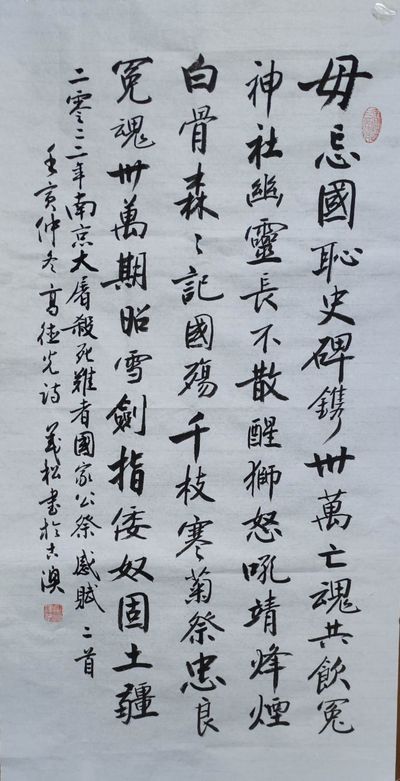 毋忘國恥史碑鐫卅萬亡魂共飲冤
神社幽靈長不散醒獅怒吼靖烽煙
白骨森〻記國殤千枝寒菊祭忠良
冤魂卅萬期昭雪劍指倭奴固土疆
二零二二年南京大屠殺死難者國家公祭感賦二首
壬寅仲冬高德光詩義松書於古澳